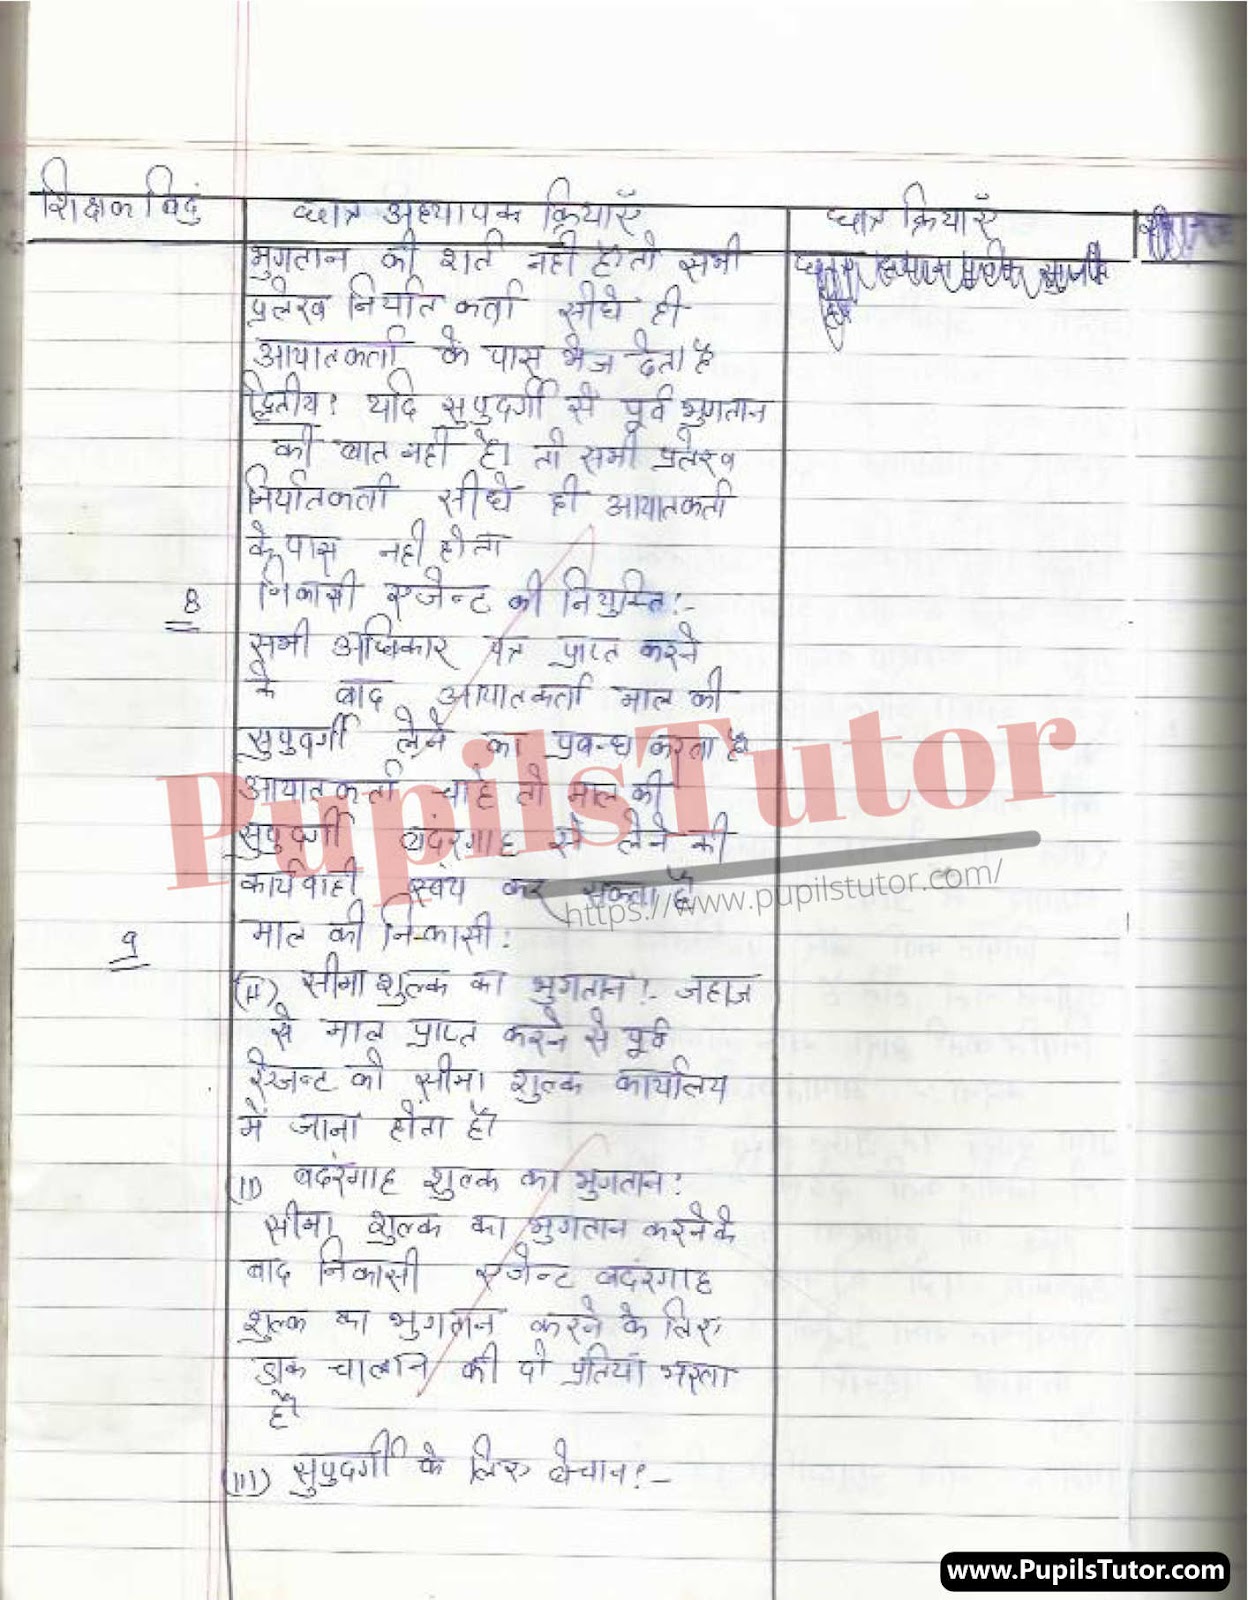 शिक्षण बिंदु छात्र अध्यापक क्रियाएँ छात्र क्रियाएँ
भुगतान की शर्त नहीं है तो सभी
प्रलेख निर्यात कर्ता सीधे ही
आयातकर्ता के पास भेज देता है
द्वितीय! यदि सुपुदर्गी से पूर्व भुगतान
की बात नहीं है। तो सभी प्रलेख
निर्यातकर्ता सीधे ही आयातकर्ता
के पास नही होता
8 निकासी एजेन्ट की नियुक्ति:-
सभी अधिकार पत्र प्राप्त करने
के बाद आयातकर्ता माल की
सुपुदर्गी लेने का प्रबन्ध करता है
PupilsTutor
आयातकर्ता चाहे तो माल की
सुपुदर्गी बदंरगाह से लेने की
कार्यवाही स्वंय कर सकता है
https://www.pupilstutor.com/
9 माल की निकासी:
सीमा शुल्क का भुगतान!- जहाज
से माल प्राप्त करने से पूर्व
ऐजन्ट को सीमा शुल्क कार्यालय
में जाना होता है।
(II) बदंरगाह शुल्क का भुगतान:
सीमा शुल्क का भुगतान करने के
बाद निकासी एजेन्ट बदंरगाह
शुल्क का भुगतान करने के लिए
डाक चालान की दो प्रतियाँ भरता
है।
(III) सुपुदर्गी के लिए बेचान!-
www.PupilsTutor.com